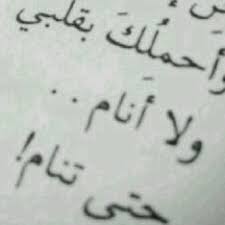 وأحملُكَ بقلبي
ولا أنام..
حتى تنام!